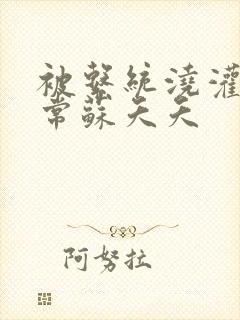 被繫統澆灌
常蘇夭夭
阿努拉